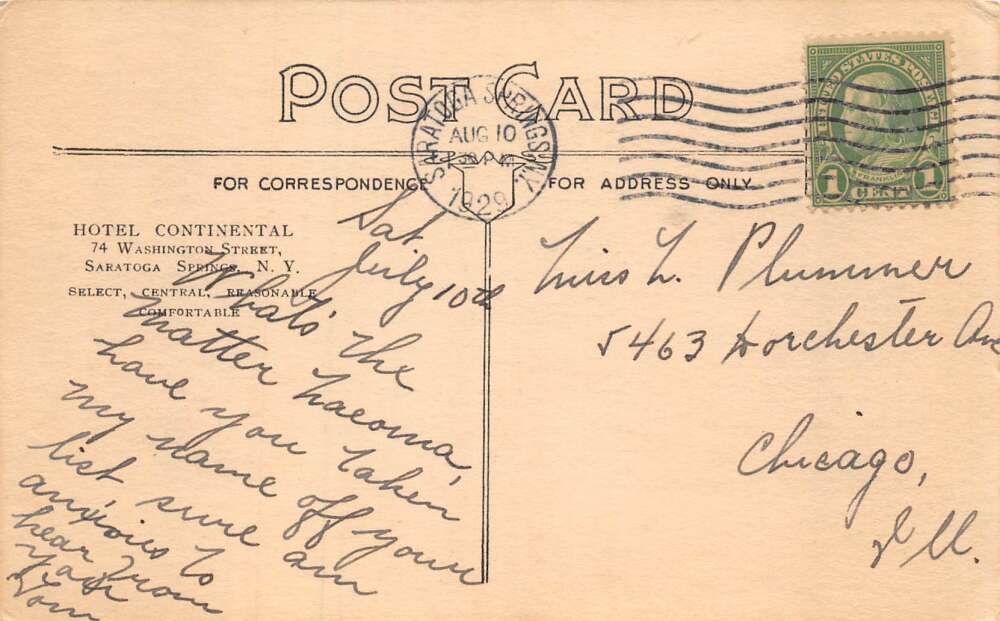 POST CARD
SARATOGA SPRINGS N.Y.
AUG 10
1929
UNITED STATES POSTAGE
FRANKLIN
1 CENT 1
FOR CORRESPONDENCE
FOR ADDRESS ONLY
HOTEL CONTINENTAL
74 WASHINGTON STREET,
SARATOGA SPRINGS, N. Y.
SELECT, CENTRAL, REASONABLE
COMFORTABLE
Sat
July 10th
What's the
matter
have you taken
my name off your
list sure am
anxious to
hear from
you
Tom
Miss L. Plummer
5463 Dorchester Ave
Chicago,
Ill.